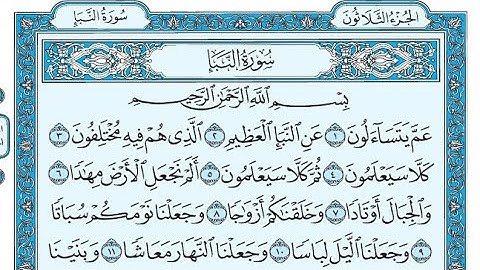 الجزء الثلاثون
سورة النبإ
سُورَةُ النَّبَإِ
بِسْمِ اللَّهِ الرَّحْمَٰنِ الرَّحِيمِ
عَمَّ يَتَسَاءَلُونَ ١ عَنِ النَّبَإِ الْعَظِيمِ ٢ الَّذِي هُمْ فِيهِ مُخْتَلِفُونَ ٣
كَلَّا سَيَعْلَمُونَ ٤ ثُمَّ كَلَّا سَيَعْلَمُونَ ٥ أَلَمْ نَجْعَلِ الْأَرْضَ مِهَٰدًا ٦
وَالْجِبَالَ أَوْتَادًا ٧ وَخَلَقْنَٰكُمْ أَزْوَٰجًا ٨ وَجَعَلْنَا نَوْمَكُمْ سُبَاتًا
٩ وَجَعَلْنَا الَّيْلَ لِبَاسًا ١٠ وَجَعَلْنَا النَّهَارَ مَعَاشًا ١١ وَبَنَيْنَا